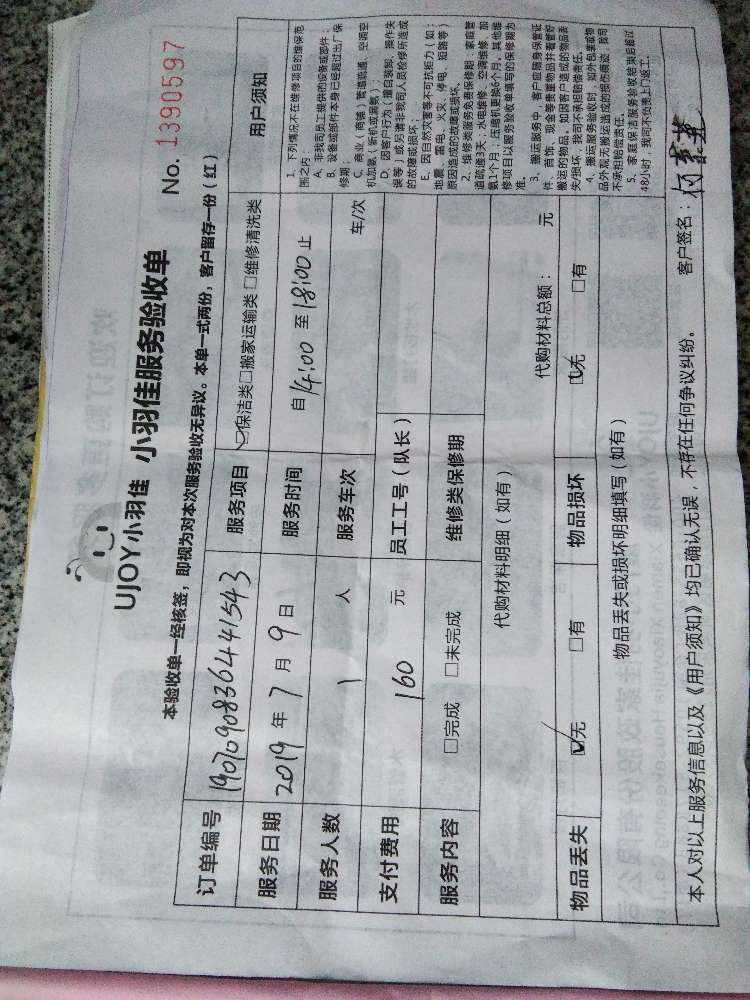 UJOY小羽佳 小羽佳服务验收单
No. 1390597
本验收单一经核签，即视为对本次服务验收无异议。本单一式两份，客户留存一份（红）
订单编号 190709083644 1543 服务项目 ☑保洁类□搬家运输类 □维修清洗类
服务日期 2019 年 7 月 9 日 服务时间 自 14:00 至 18:00 止
服务人数 1 人 服务车次 车/次
支付费用 160 元 员工工号（队长）
服务内容 □完成 □未完成 维修类保修期
代购材料明细（如有） 代购材料总额： 元
物品丢失 ☑无 □有 物品损坏 ☑无 □有
物品丢失或损坏明细填写（如有）
用户须知
1. 下列情况不在维修项目的维保范
围之内：
A. 非我司员工提供的设备或部件；
B. 设备或部件本身已经超过出厂保
修期；
C. 商业（商铺）管道疏通、空调空
机加氨（新机或漏氨）；
D. 因客户行为（擅自装卸、操作失
误等）或另请非我司人员检修所造成
的故障或损坏；
E. 因自然灾害等不可抗拒力（如：
地震、雷电、火灾、停电、短路等）
原因造成的故障或损坏。
2. 维修类服务免费保修期：家庭管
道疏通3天；水电维修、空调维修、加
氨1个月；压缩机更换6个月。其他维
修项目以服务验收单填写的保修期为
准。
3. 搬运服务中，客户应随身保管证
件、首饰、现金等贵重物品并看管好
搬运的物品。如因客户造成的物品丢
失/损坏，我司不承担赔偿责任。
4. 搬运服务验收时，如外包装或物
品外观无搬运造成的损伤痕迹，我司
不承担赔偿责任。
5. 家庭保洁服务验收结束后超过
48小时，我司不负责上门返工。
本人对以上服务信息以及《用户须知》均已确认无误，不存在任何争议纠纷。 客户签名：